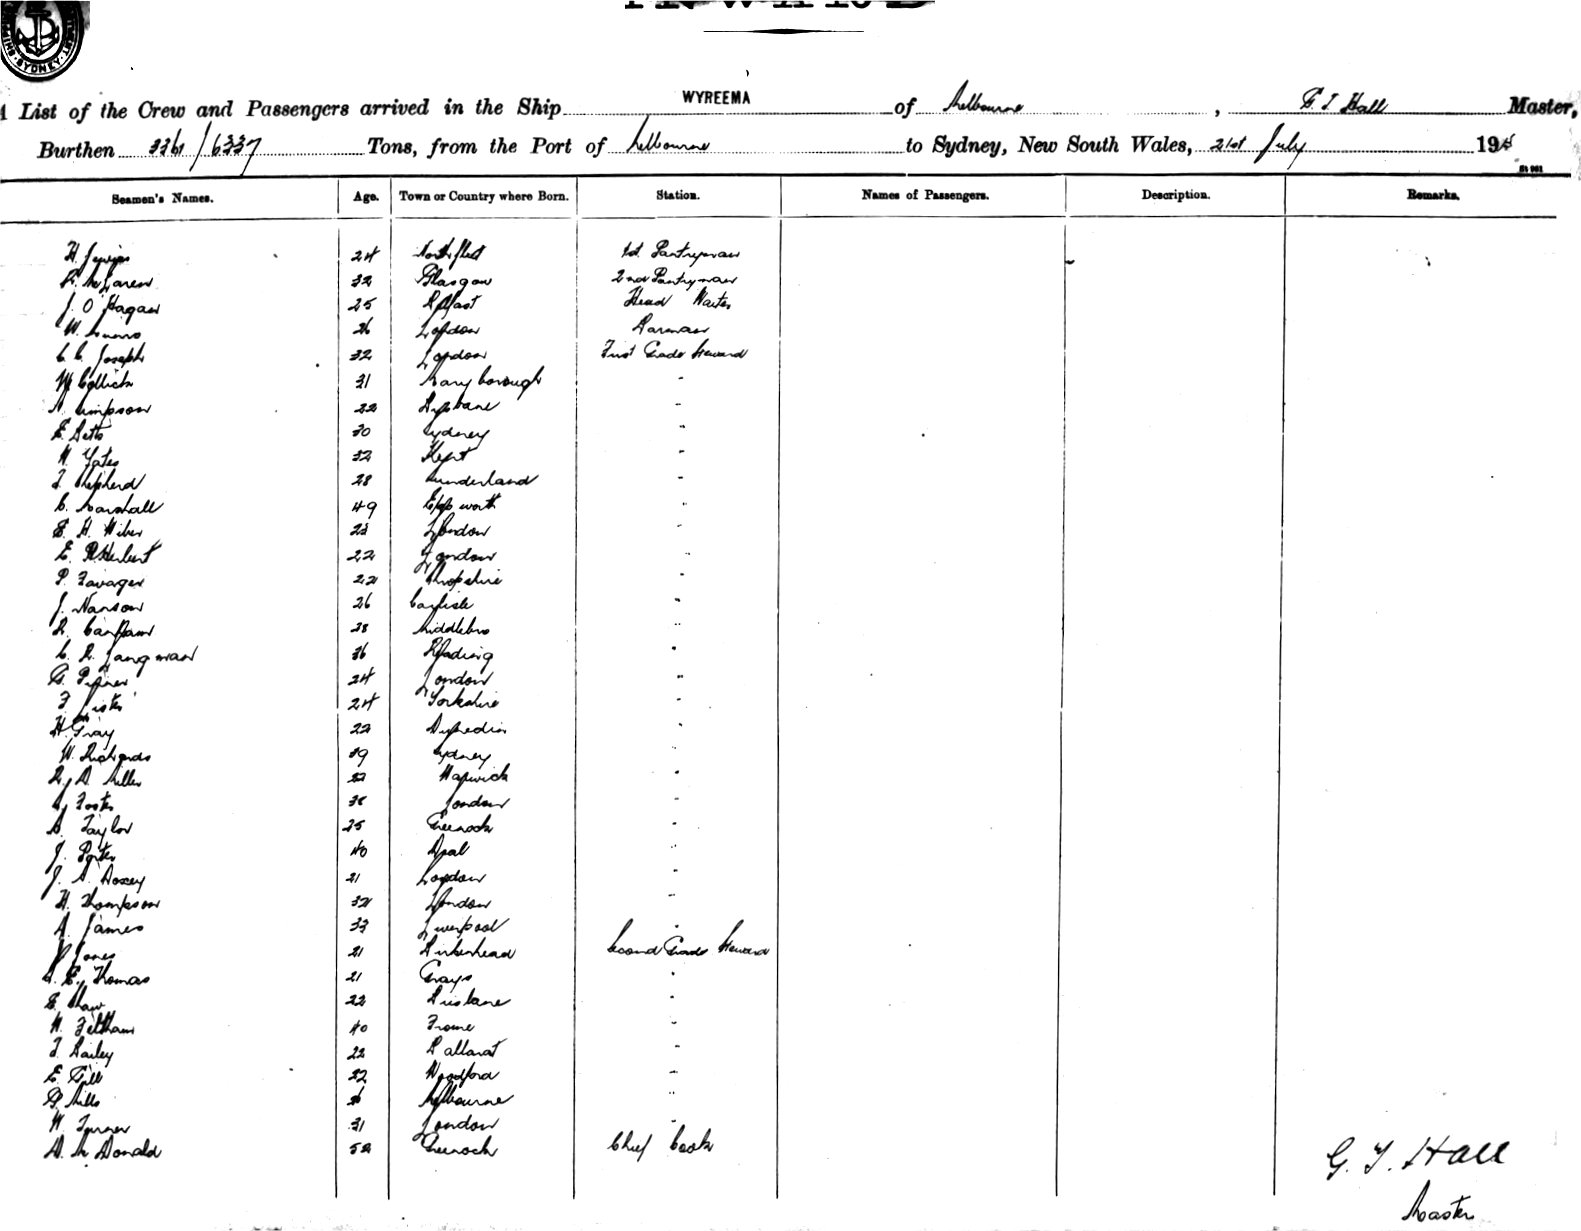 SYDNEY
INWARD
A List of the Crew and Passengers arrived in the Ship WYREEMA of Melbourne, G. T. Hall Master,
Burthen 3361/6337 Tons, from the Port of Melbourne to Sydney, New South Wales, 21st July 191
Seamen's Names. Age. Town or Country where Born. Station. Names of Passengers. Description. Remarks.
H. 24 Northfleet 1st Pantryman
R. McLaren 32 Glasgow 2nd Pantryman
J. O'Hagan 25 Belfast Head Waiter
W. Munro 26 London Barman
C. C. Joseph 32 London First Grade Steward
W. Collick 31 Maryborough "
A. Simpson 22 Brisbane "
E. Betts 30 Sydney "
W. Yates 32 Kent "
T. Shepherd 28 Sunderland "
C. Marshall 49 Epworth "
E. H. 23 London "
E. R. Herbert 22 London "
P. Favager 22 Shropshire "
J. Nanson 26 Carlisle "
R. 28 Middlesbro "
C. R. Langman 36 Reading "
G. 24 London "
F. Lister 24 Yorkshire "
H. Gray 22 Dunedin "
W. Richards 39 Sydney "
R. A. Miller 32 Harwick "
A. Foster 38 London "
A. Taylor 25 Greenock "
J. Porter 40 Deal "
J. A. Doxey 21 London "
H. Thompson 32 London "
A. James 33 Liverpool "
Jones 21 Birkenhead Second Grade Steward
A. E. Thomas 21 Grays "
E. Shaw 22 Brisbane "
W. Feltham 40 Frome "
T. Bailey 22 Ballarat "
E. Gill 32 Woodford "
G. Mills Melbourne "
W. Turner 31 London "
D. McDonald 52 Greenock Chief Cook
G. T. Hall
Master